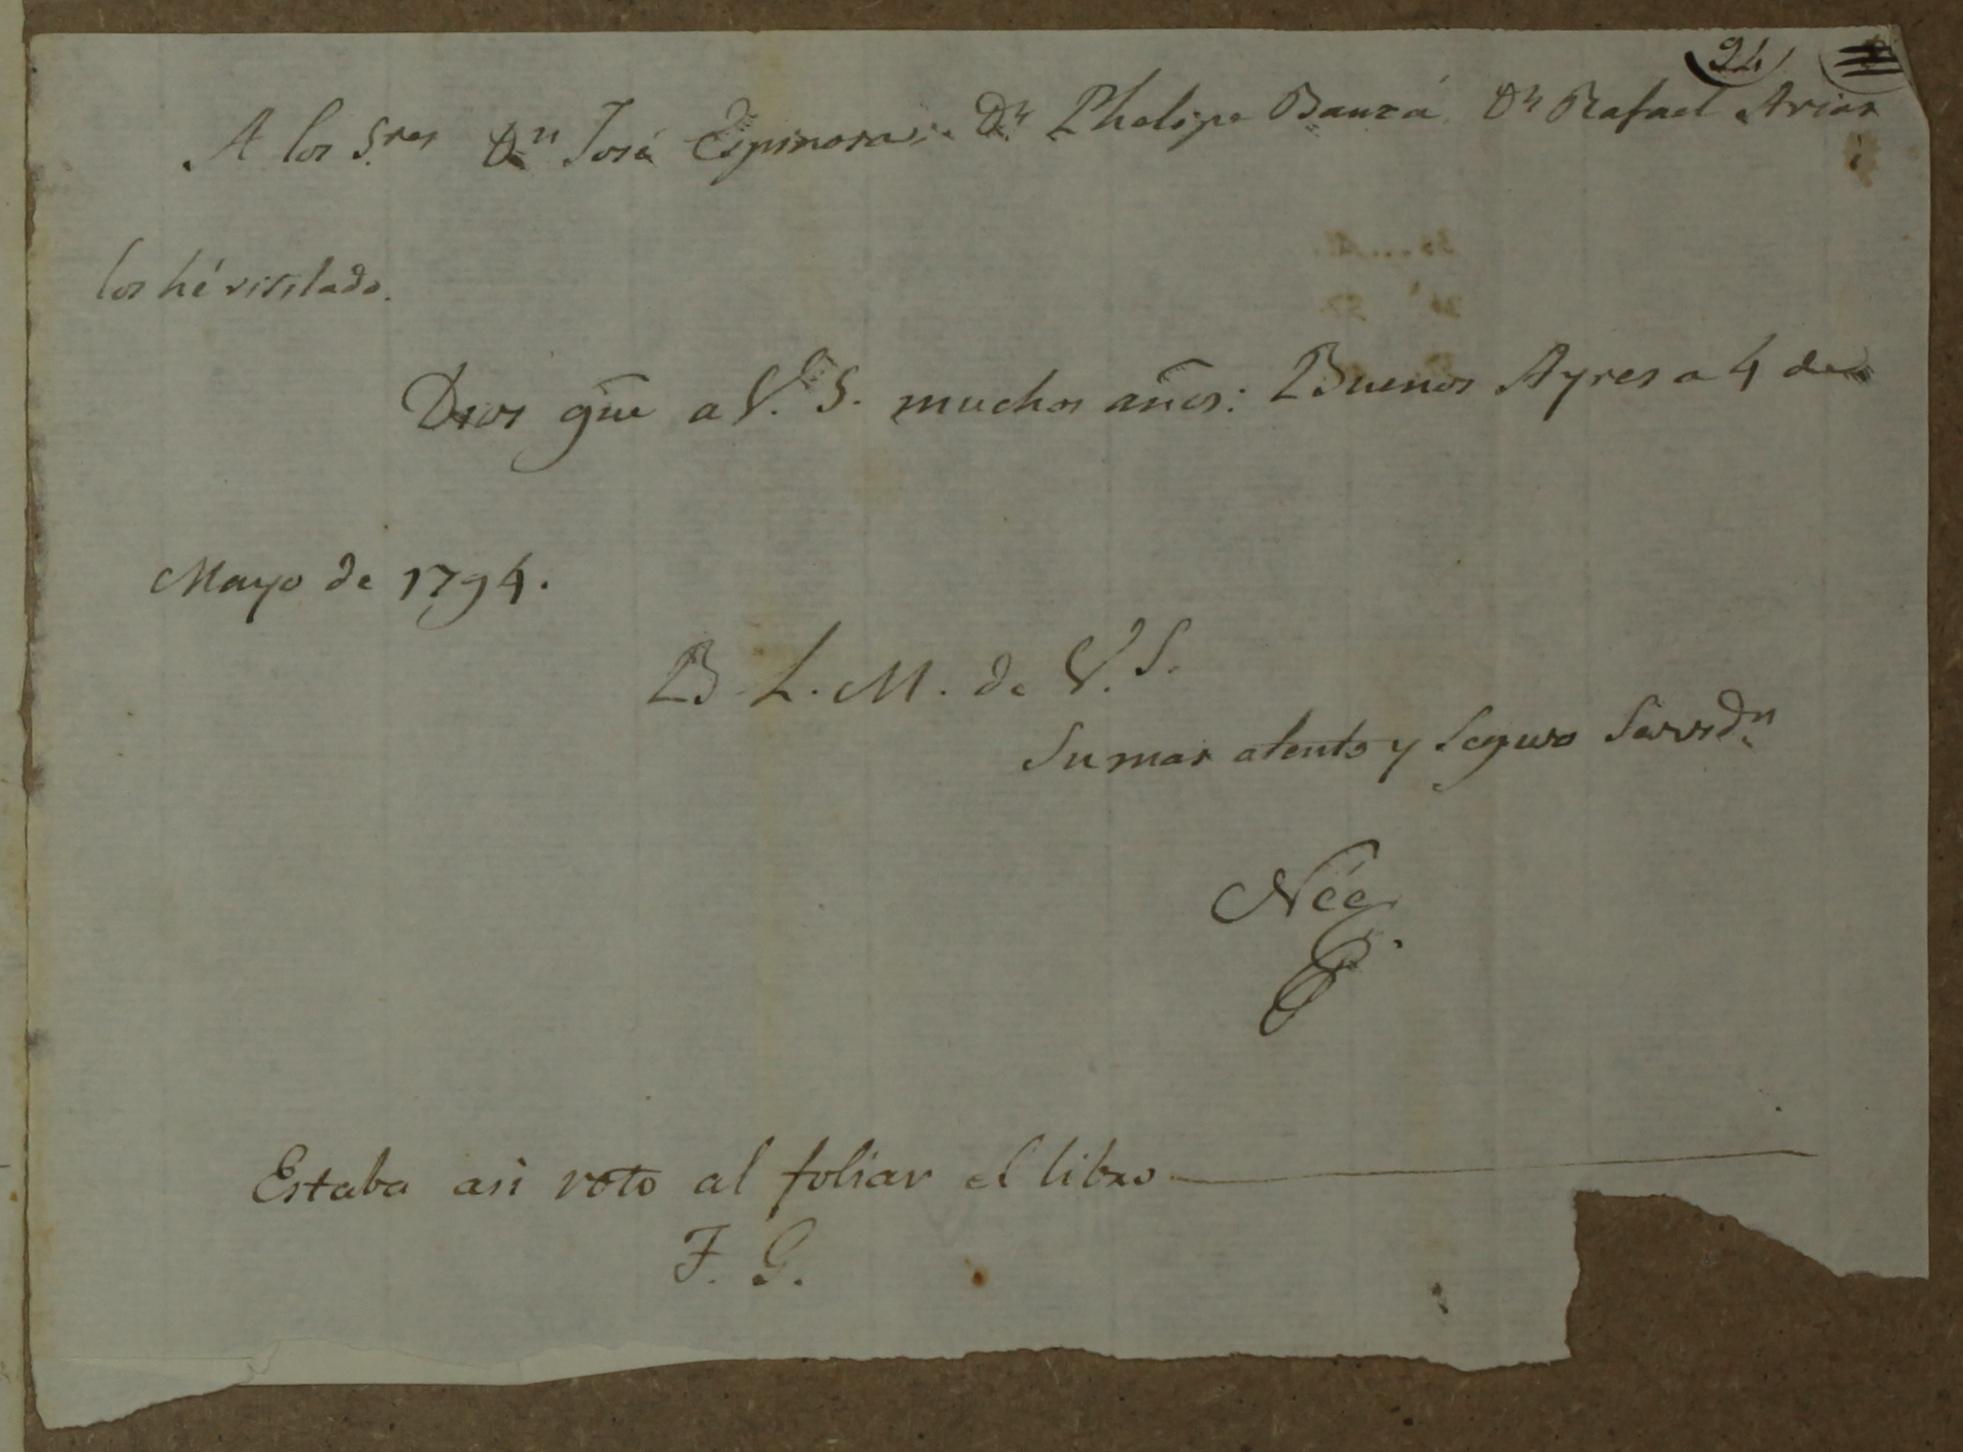 94
A los S.res Dn José Espinosa; Dn Phelipe Bauzá Dn Rafael Arias
i
los hé visitado.
Dios gue a V. S. muchos años: Buenos Ayres a 4 de
Mayo de 1794.
B. L. M. de V. S.
Su mas atento y seguro Servidn
Née
Estaba asi roto al foliar el libro
F. G.